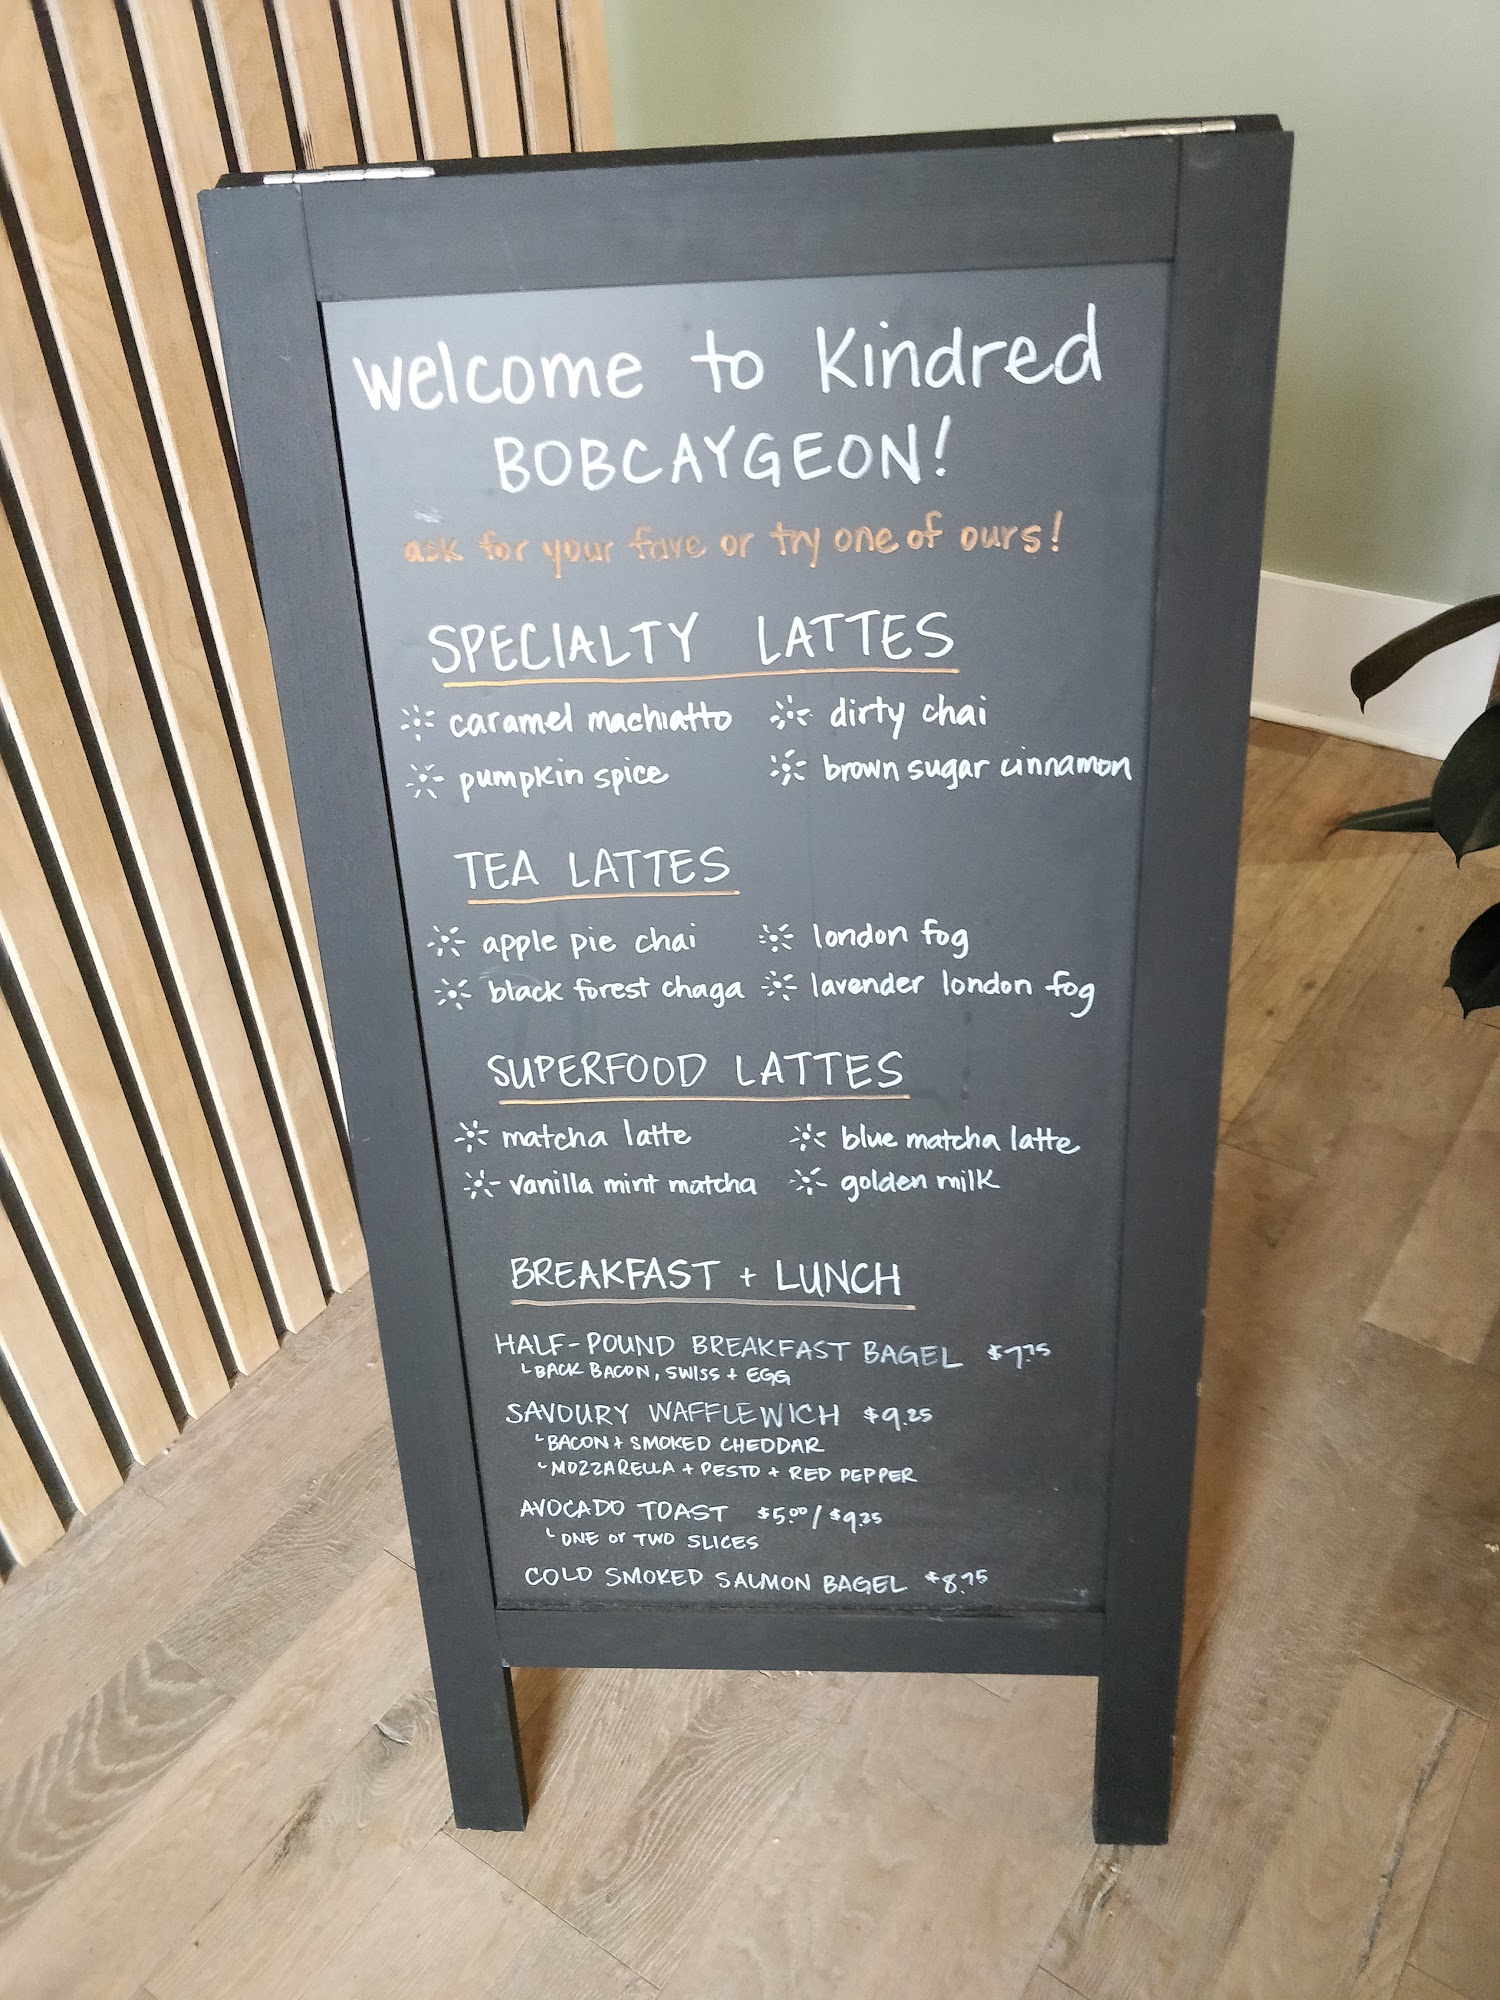 welcome to Kindred
BOBCAYGEON!
ask for your fave or try one of ours!
SPECIALTY LATTES
caramel machiatto dirty chai
pumpkin spice brown sugar cinnamon
TEA LATTES
apple pie chai london fog
black forest chaga lavender london fog
SUPERFOOD LATTES
matcha latte blue matcha latte
vanilla mint matcha golden milk
BREAKFAST + LUNCH
HALF-POUND BREAKFAST BAGEL $7.75
BACK BACON, SWISS + EGG
SAVOURY WAFFLEWICH $9.25
BACON + SMOKED CHEDDAR
MOZZARELLA + PESTO + RED PEPPER
AVOCADO TOAST $5.00 / $9.25
ONE or TWO SLICES
COLD SMOKED SALMON BAGEL $8.75